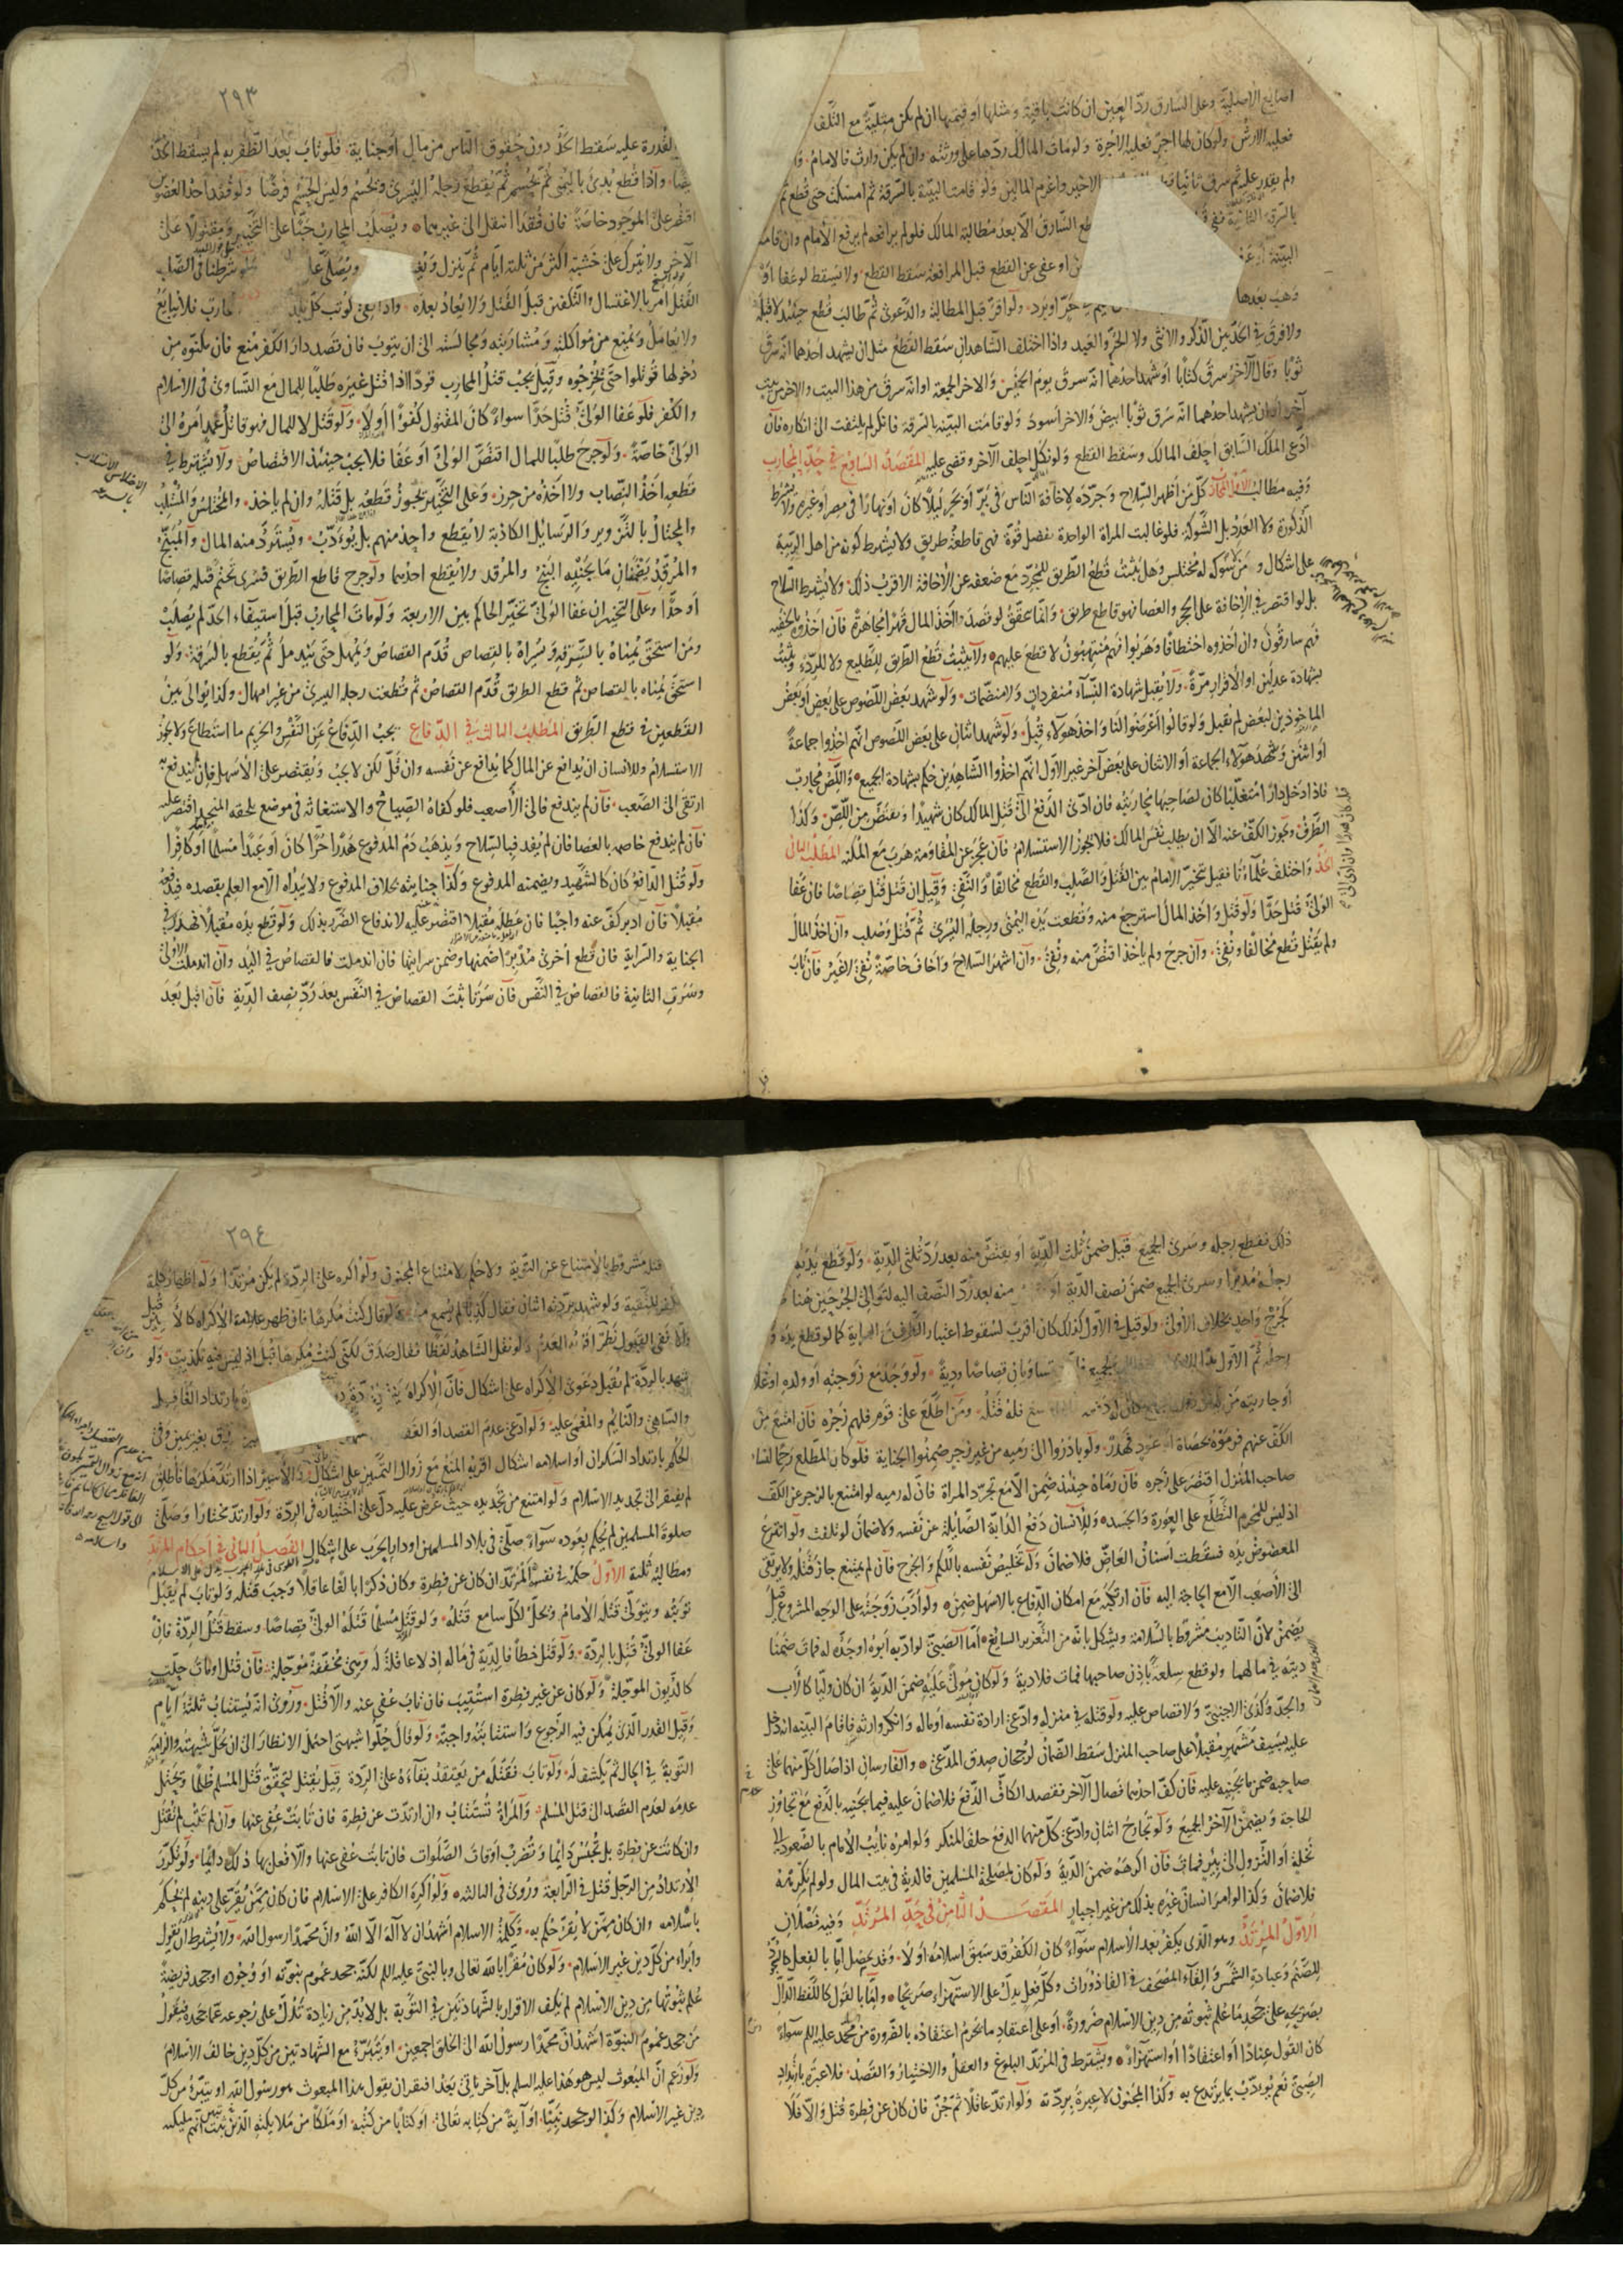 اصابع الاصلية وعلى السارق رد العين ان كانت باقية ومثلها او قيمتها ان لم يكن مثلية مع التلف
فعليه الارش ولو كان لها اجرة فعليه الاجرة ولو مات المالك ردها على ورثته وان لم يكن وارث فالامام
ولم يقدر عليه ثم سرق ثانيا الاخير واغرم المالين ولو قامت البينة بالسرقة ثم امسكت حتى قطع ثم
بالسرقة الثانية السارق الا بعد مطالبة المالك فلو لم يرافعه لم يرفع الامام وان قامت
البينة او عفى عن القطع قبل المرافعة سقط القطع ولا يسقط لو عفا او
وهب بعدها حر او برد ولو اقر قبل المطالبة والدعوى ثم طالب قطع حينئذ لا قبله
ولا فرق في الحد بين الذكر والانثى ولا الحر والعبد واذا اختلف الشاهدان سقط القطع مثل ان يشهد احدهما انه سرق
ثوبا وقال الآخر سرق كتابا او شهد احدهما انه سرق يوم الخميس والاخر الجمعة او انه سرق من هذا البيت والاخر من بيت
آخر او ان يشهد احدهما انه سرق ثوبا ابيض والاخر اسود ولو قامت البينة بالسرقة فانكر لم يلتفت الى انكاره فان
ادعى الملك السابق احلف المالك وسقط القطع ولو نكل احلف الآخر وقضى عليه المقصد السابع في حد المحارب
وفيه مطالب الاول المحارب كل من اظهر السلاح وجرده لاخافة الناس في بر او بحر ليلا كان او نهارا في مصر او غيره ولا يشترط
الذكورة ولا العدد بل الشوكة فلو غالبت المراة الواحدة بفضل قوة فهي قاطعة طريق ولا يشترط كونه من اهل الريبة
على اشكال و من لا شوكة له مختلس وهل يثبت قطع الطريق للمجرد مع ضعفه عن الاخافة الاقرب ذلك ولا يشترط السلاح
بل لو اقتصر في الاخافة على الحجر والعصا فهو قاطع طريق وانما يتحقق لو قصدوا اخذ المال قهرا مجاهرة فان اخذوه بالخفية
فهم سارقون وان اخذوه اختطافا وهربوا فهم منتهبون لا قطع عليهم ولا يثبت قطع الطريق للطليع ولا للردء ويثبت
بشهادة عدلين او الاقرار مرة ولا يقبل شهادة النساء منفردات ولا منضمات ولو شهد بعض اللصوص على بعض او بعض
الماخوذين لبعض لم تقبل ولو قالوا اعرضوا لنا واخذ هؤلاء قبل ولو شهد اثنان على بعض اللصوص انهم اخذوا جماعة
او اثنين وشهد هؤلاء الجماعة او الاثنان على بعض آخر غير الاول انهم اخذوا الشاهدين حكم بشهادة الجميع واللص محارب
فاذا دخل دارا متغلبا كان لصاحبها محاربته فان ادى الدفع الى قتل المالك كان شهيدا ويقتص من اللص وكذا
الطرف ويجوز الكف عنه الا ان يطلب نفس المالك فلا يجوز الاستسلام فان عجز عن المقاومة هرب مع المكنة المطلب الثاني
الحد واختلف علماؤنا فقيل يتخير الامام بين القتل والصلب والقطع مخالفا والنفي وقيل ان قتل قتل قصاصا فان عفا
الولي قتل حدا ولو قتل واخذ المال استرجع منه وقطعت يده اليمنى ورجله اليسرى ثم قتل وصلب وان اخذ المال
ولم يقتل قطع مخالفا ونفي وان جرح ولم ياخذ اقتص منه ونفي وان اشهر السلاح واخاف خاصة نفي لا غير فان تاب
٢٩٣
القدرة عليه سقط الحد دون حقوق الناس من مال او جناية فلو تاب بعد الظفر به لم يسقط الحد
ايضا واذا قطع بدئ باليمنى ثم يحسم ثم يقطع رجله اليسرى وتحسم وليس الحسم فرضا ولو فقد احد العضوين
اقتصر على الموجود خاصة فان فقدا انتقل الى غيرهما ويصلب المحارب حيا على التخيير ومقتولا على
الآخر ولا يترك على خشبته اكثر من ثلثة ايام ثم ينزل ويصلى ولو شرطنا في الصلب
القتل امر بالاغتسال والتكفين قبل القتل ولا يعاد بعده واذا نفي كوتب كل بلد فلا يبايع
ولا يعامل ويمنع من مؤاكلته ومشاربته ومجالسته الى ان يتوب فان قصد دار الكفر منع فان مكنوه من
دخولها قوتلوا حتى يخرجوه وقيل يجب قتل المحارب قودا اذا قتل غيره طلبا للمال مع التساوي في الاسلام
والكفر فلو عفا الولي قتل حدا سواء كان المقتول كفوا او لا ولو قتل لا للمال فهو قاتل عمد امره الى
الولي خاصة ولو جرح طلبا للمال اقتص الولي او عفا فلا يجب حينئذ الاقتصاص ولا يشترط في
قطعه اخذ النصاب ولا اخذه من حرز وعلى التخيير يجوز قطعه بل قتله وان لم ياخذ والمختلس والمستلب
والمحتال بالتزوير والرسايل الكاذبة لا يقطع واحد منهم بل يؤدب ويسترد منه المال والمبنج
والمرقد يضمنان ما يجنيه البنج والمرقد ولا يقطع احدهما ولو جرح قاطع الطريق فسرى تحتم قتله قصاصا
او حدا وعلى التخيير ان عفا الولي تخير الحاكم بين الاربعة ولو مات المحارب قبل استيفاء الحد لم يصلب
ومن استحق يمناه بالسرقة ويسراه بالقصاص قدم القصاص ويمهل حتى يندمل ثم يقطع بالسرقة ولو
استحق يمناه بالقصاص ثم قطع الطريق قدم القصاص ثم قطعت رجله اليسرى من غير امهال وكذا يوالى بين
القطعين في قطع الطريق المطلب الثالث في الدفاع يجب الدفاع عن النفس والحريم ما استطاع ولا يجوز
الاستسلام وللانسان ان يدافع عن المال كما يدافع عن نفسه وان قل لكن لا يجب ويقتصر على الاسهل فان لم يندفع به
ارتقى الى الصعب فان لم يندفع فالى الاصعب فلو كفاه الصياح والاستغاثة في موضع يلحقه المنجد اقتصر عليه
فان لم يندفع خاصمه بالعصا فان لم يفد فبالسلاح ويذهب دم المدفوع هدرا حرا كان او عبدا مسلما او كافرا
ولو قتل الدافع كان كالشهيد ويضمنه المدفوع وكذا جنايته بخلاف المدفوع ولا يبداه الا مع العلم بقصده فيدفعه
مقبلا فان ادبر كف عنه واجبا فان عطله مقبلا اقتصر عليه لاندفاع الضرر بذلك ولو قطع يده مقبلا فهدر في
الجناية والسراية فان قطع اخرى مدبرا ضمنها وضمن سرايتها فان اندملت فالقصاص في اليد وان اندملت الاولى
وسرت الثانية فالقصاص في النفس فان سرتا ثبت القصاص في النفس بعد رد نصف الدية فان اقبل بعد
ذلك فقطع رجله وسرى الجميع قيل ضمن ثلث الدية او يقتص منه بعد رد ثلثي الدية ولو قطع يديه
رجله مدبرا وسرى الجميع ضمن نصف الدية او منه بعد رد النصف اليه لتوالى الجرحين هنا
كجرح واحد بخلاف الاولى ولو قيل في الاول كذلك كان اقرب لسقوط اعتبار الطرف مع السراية كما لو قطع يده و
رجله ثم الاول تساويان قصاصا ودية ولو وجد مع زوجته او ولده او غلامه
او جاريته من فله قتله ومن اطلع على قوم فلهم زجره فان امتنع من
الكف عنهم فرموه بحصاة او عود فهدر ولو بادروا الى رميه من غير زجر ضمنوا الجناية فلو كان المطلع رحما لنساء
صاحب المنزل اقتصر على زجره فان رماه حينئذ ضمن الا مع تجرد المراة فان له رميه لو امتنع بالزجر عن الكف
اذ ليس للمحرم التطلع على العورة والجسد وللانسان دفع الدابة الصائلة عن نفسه ولا ضمان لو تلفت ولو انتزع
المعضوض يده فسقطت اسنان العاض فلا ضمان وله تخليص نفسه باللكم والجرح فان لم يمتنع جاز قتله ولا يرتقي
الى الاصعب الا مع الحاجة اليه فان ارتكبه مع امكان الدفاع بالاسهل ضمن ولو ادب زوجته على الوجه المشروع قيل
يضمن لان التاديب مشروط بالسلامة ويشكل بانه من التعزير السايغ اما الصبي لو ادبه ابوه او جده له فمات ضمنا
ديته في مالهما ولو قطع سلعة باذن صاحبها فمات فلا دية ولو كان مولى عليه ضمن الدية ان كان وليا كالاب
والجد وكذا الاجنبي ولا قصاص عليه ولو قتله في منزله وادعى ارادة نفسه او ماله وانكر وارثه فاقام البينة انه دخل
عليه بسيف مشهر مقبلا على صاحب المنزل سقط الضمان لرجحان صدق المدعي والفارسان اذا صال كل منهما على
صاحبه ضمن ما يجنيه عليه فان كف احدهما فصال الآخر فقصد الكاف الدفع فلا ضمان عليه فيما يجنيه بالدفع مع تجاوز
الحاجة ويضمن الآخر الجميع ولو تجارح اثنان وادعى كل منهما الدفع حلف المنكر ولو امره نايب الامام بالصعود الى
نخلة او النزول الى بئر فمات فان اكرهه ضمن الدية ولو كان لمصلحة المسلمين فالدية في بيت المال ولو لم يكرهه
فلا ضمان وكذا لو امر انسان غيره بذلك من غير اجبار المقصد الثامن في حد المرتد وفيه فصلان
الاول المرتد وهو الذي يكفر بعد الاسلام سواء كان الكفر قد سبق اسلامه او لا وقد يحصل اما بالفعل كالسجود
للصنم وعبادة الشمس والقاء المصحف في القاذورات وكل فعل يدل على الاستهزاء صريحا واما بالقول كاللفظ الدال
بصريحه على جحد ما علم ثبوته من دين الاسلام ضرورة او على اعتقاد ما يحرم اعتقاده بالضرورة من دين محمد عليه السلم سواء
كان القول عنادا او اعتقادا او استهزاء ويشترط في المرتد البلوغ والعقل والاختيار والقصد فلا عبرة بارتداد
الصبي نعم يؤدب بما يرتدع به وكذا المجنون لا عبرة بردته ولو ارتد عاقلا ثم جن فان كان عن فطرة قتل والا فلا
٢٩٤
قتله مشروط بالامتناع عن التوبة ولا حكم لامتناع المجنون ولو اكره على الردة لم يكن مرتدا وله اظهار كلمة
الكفر للتقية ولو شهد بردته اثنان فقال كذبا لم يسمع منه ولو قال كنت مكرها فان ظهر علامة الاكراه كالاسر قبل
والا ففي القبول نظر العدم ولو نقل الشاهد لفظا فقال صدق لكني كنت مكرها قبل اذ ليس فيه تكذيب ولو
شهد بالردة لم يقبل دعوى الاكراه على اشكال فان الاكراه بارتداد الغافل
والساهي والنائم والمغمى عليه ولو ادعى عدم القصد او الغفلة بغير يمين وفي
الحكم بارتداد السكران او اسلامه اشكال اقربه المنع مع زوال التمييز على اشكال والاسير اذا ارتد مكرها فاطلق
لم يفتقر الى تجديد الاسلام ولو امتنع من تجديده حيث عرض عليه دل على اختياره في الردة ولو ارتد مختارا وصلى
صلوة المسلمين لم يحكم بعوده سواء صلى في بلاد المسلمين او دار الحرب على اشكال الفصل الثاني في احكام المرتد
ومطالبه ثلثة الاول حكمه في نفسه المرتد ان كان عن فطرة وكان ذكرا بالغا عاقلا وجب قتله ولو تاب لم يقبل
توبته ويتولى قتله الامام ويحل لكل سامع قتله ولو قتل مسلما قتله الولي قصاصا وسقط قتل الردة فان
عفا الولي قتل بالردة ولو قتل خطأ فالدية في ماله اذ لا عاقلة له وهي مخففة مؤجلة فان قتل او مات حلت
كالديون المؤجلة ولو كان عن غير فطرة استتيب فان تاب عفي عنه والا قتل وروي انه يستتاب ثلثة ايام
وقيل القدر الذي يمكن فيه الرجوع واستتابته واجبة ولو قال حلوا شبهتي احتمل الانظار الى ان يحل شبهته والزامه
التوبة في الحال ثم يكشف له ولو تاب فقتله من يعتقد بقاءه على الردة قيل يقتل لتحقق قتل المسلم ظلما ويحتمل
عدمه لعدم القصد الى قتل المسلم والمراة تستتاب وان ارتدت عن فطرة فان تابت عفي عنها وان لم تتب لم تقتل
وان كانت عن فطرة بل تحبس دائما وتضرب اوقات الصلوات فان تابت عفى عنها والا فعل بها ذلك دائما ولو تكرر
الارتداد من الرجل قتل في الرابعة وروي في الثالثة ولو اكره الكافر على الاسلام فان كان ممن يقر على دينه لم يحكم
باسلامه وان كان ممن لا يقر حكم به وكلمة الاسلام اشهد ان لا اله الا الله وان محمدا رسول الله ولا يشترط ان يقول
وابراء من كل دين غير الاسلام ولو كان مقرا بالله تعالى وبالنبي عليه السلم لكنه جحد عموم نبوته او وجوده او جحد فريضة
علم ثبوتها من دين الاسلام لم يكف الاقرار بالشهادتين في التوبة بل لا بد من زيادة تدل على رجوعه عما جحده فيقول
من جحد عموم النبوة اشهد ان محمدا رسول الله الى الخلق اجمعين او يتبرئ مع الشهادتين من كل دين خالف الاسلام
ولو زعم ان المبعوث ليس هو هذا عليه السلم بل آخر ياتي بعد افتقر ان يقول هذا المبعوث هو رسول الله او يتبرئ من كل
دين غير الاسلام وكذا لو جحد نبيا او آية من كتابه تعالى او كتابا من كتبه او ملكا من ملائكته الذين ثبت انهم ملائكته